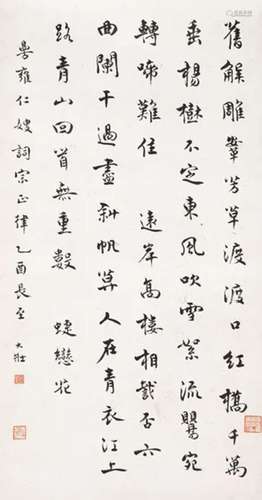 舊解雕鞌芳草渡渡口紅橋千萬
垂楊樹不定東風吹雪絮流鶯宛
轉啼難住 遠岸高樓相識否六
曲闌干過盡斜帆莫人在青衣江上
路青山回首無重數 蜨戀花
雍仁嫂詞宗正律乙酉長至 大壯